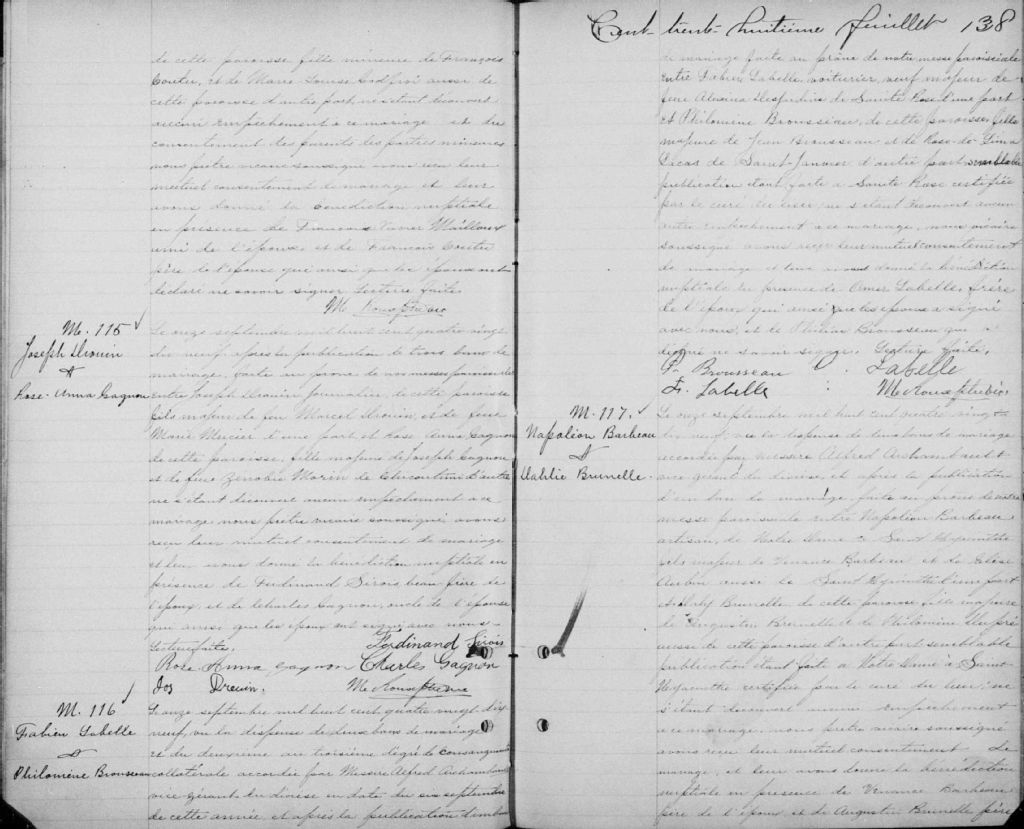 de cette paroisse fille mineure de François
Coutu, et de Marie Louise Godfroi aussi de
cette paroisse d'autre part, ne s'étant découvert
aucun empêchement à ce mariage et du
consentement des parents des parties mineures
nous prêtre vicaire soussigné avons reçu leur
mutuel consentement de mariage et leur
avons donné la bénédiction nuptiale
en présence de François Xavier Mailloux
ami de l'époux, et de François Coutu
père de l'épouse qui ainsi que les époux ont
déclaré ne savoir signer. Lecture faite
M. 115
Joseph Drouin
&
Rose-Anna Gagnon
Le onze septembre mil huit cent quatre vingt
dix neuf, après la publication de trois bans de
mariage, faite au prône de nos messes paroissiales
entre Joseph Drouin journalier, de cette paroisse
fils majeur de feu Marcel Drouin, et de feue
Marie Mercier d'une part et Rose Anna Gagnon
de cette paroisse, fille majeure de Joseph Gagnon
et de feue Zenobie Morin de Chicoutimi d'autre
ne s'étant découvert aucun empêchement à ce
mariage nous prêtre vicaire soussigné avons
reçu leur mutuel consentement de mariage
et leur avons donné la bénédiction nuptiale en
présence de Ferdinand Sirois beau frère de
l'époux, et de Charles Gagnon, oncle de l'épouse
qui ainsi que les époux ont signé avec nous.
Lecture faite. Ferdinand Sirois
Rose Anna Gagnon Charles Gagnon
Jos Drouin.
M. 116
Fabien Labelle
&
Philomène Brousseau
Le onze septembre mil huit cent quatre vingt dix
neuf, vu la dispense de deux bans de mariage
et du deuxième au troisième degré de consanguinité
collatérale accordée par Messire Alfred Archambault
vice gérant du diocèse en date du six septembre
de cette année et après la publication d'un ban
Cent-trente-huitième feuillet 138
de mariage faite au prône de notre messe paroissiale
entre Fabien Labelle voiturier, veuf majeur de
feue Alexina Desjardins de Sainte Rose d'une part
et Philomène Brousseau, de cette paroisse, fille
majeure de Jean Brousseau et de Rose-de-Lima
de Saint-Janvier d'autre part semblable
publication étant faite à Sainte Rose certifiée
par le curé du lieu, ne s'étant découvert aucun
autre empêchement à ce mariage, nous vicaire
soussigné avons reçu leur mutuel consentement
de mariage et leur avons donné la bénédiction
nuptiale en présence de Omer Labelle, frère
de l'époux qui ainsi que les époux a signé
avec nous, et de Brousseau qui a
déclaré ne savoir signer. Lecture faite.
P. Brousseau O. Labelle
F. Labelle
M. 117.
Napoléon Barbeau
&
Brunelle.
Le onze septembre mil huit cent quatre vingt
dix neuf, vu la dispense de deux bans de mariage
accordée par messire Alfred Archambault
vice gérant du diocèse, et après la publication
d'un ban de mariage faite au prône de notre
messe paroissiale entre Napoléon Barbeau
artisan, de Notre Dame de Saint Hyacinthe
fils majeur de Venance Barbeau et de
Aubin aussi de Saint Hyacinthe d'une part
et Brunelle de cette paroisse fille majeure
de Augustin Brunelle et de Philomène
aussi de cette paroisse d'autre part semblable
publication étant faite à Notre Dame de Saint
Hyacinthe certifiée par le curé du lieu, ne
s'étant découvert aucun empêchement
à ce mariage, nous prêtre vicaire soussigné
avons reçu leur mutuel consentement de
mariage, et leur avons donné la bénédiction
nuptiale en présence de Venance Barbeau
père de l'époux et de Augustin Brunelle père